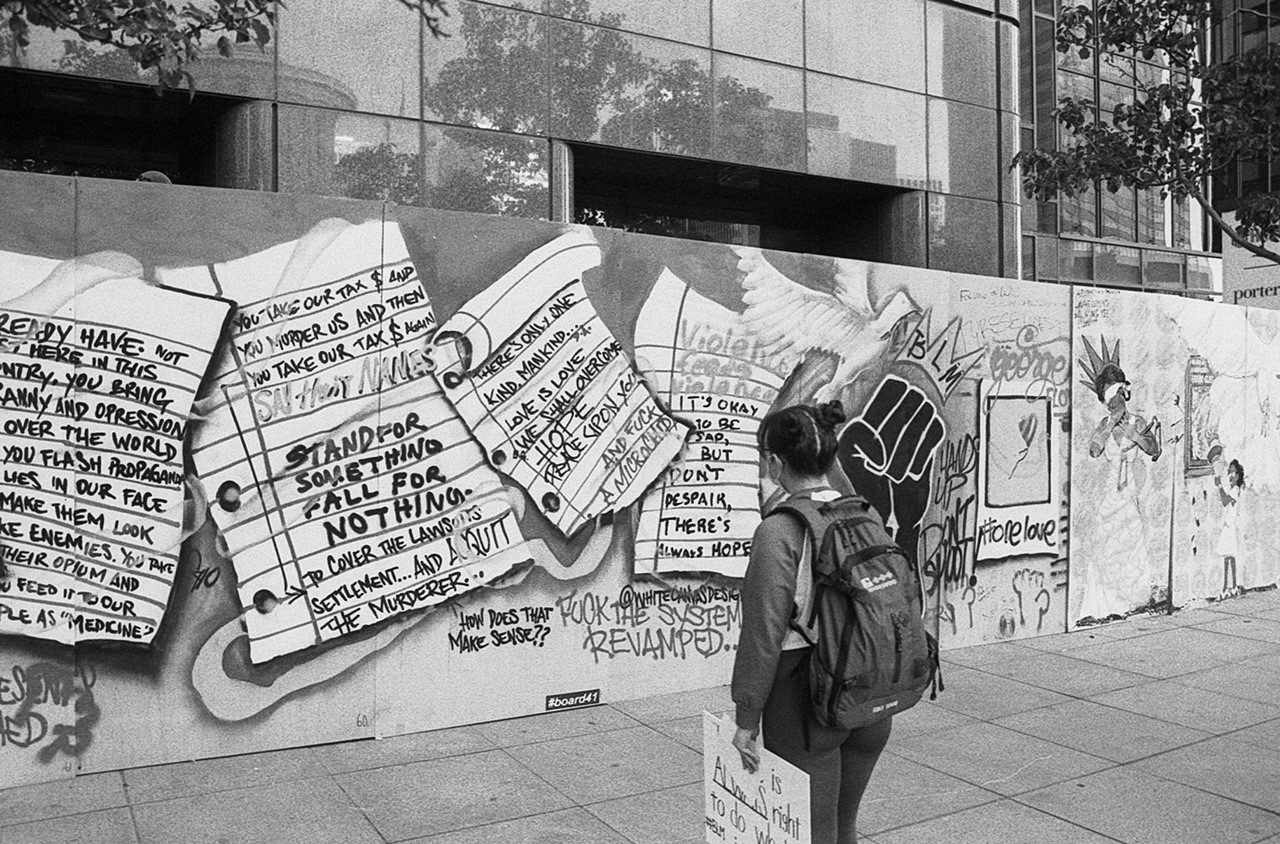 READY HAVE. NOT
HERE IN THIS
NTRY. YOU BRING
RANNY AND OPRESSION
OVER THE WORLD
YOU FLASH PROPAGANDA
LIES IN OUR FACE
MAKE THEM LOOK
KE ENEMIES. YOU TAKE
THEIR OPIUM AND
U FEED IT TO OUR
PLE AS "MEDICINE"
YOU TAKE OUR TAX $ AND
YOU MURDER US AND THEN
YOU TAKE OUR TAX $ AGAIN
SAY THEIR NAMES
STAND FOR
SOMETHING
FALL FOR
NOTHING.
TO COVER THE LAWSUITS
SETTLEMENT... AND ACQUIT
THE MURDERER...
HOW DOES THAT
MAKE SENSE??
THERE'S ONLY ONE
KIND, MANKIND...
LOVE IS LOVE
"WE SHALL OVERCOME
HOPE
PEACE UPON YOU
AND FUCK
A MICROCHIP
Violence
feeds
violence
IT'S OKAY
TO BE
SAD,
BUT
DON'T
DESPAIR,
THERE'S
ALWAYS HOPE
@WHITECANVASDESIG
FUCK THE SYSTEM
REVAMPED..
#board41
60
BLM
George
HANDS
UP
DON'T
SHOOT!
#forelove
porter
is
ALWAYS right
to do
#BLM